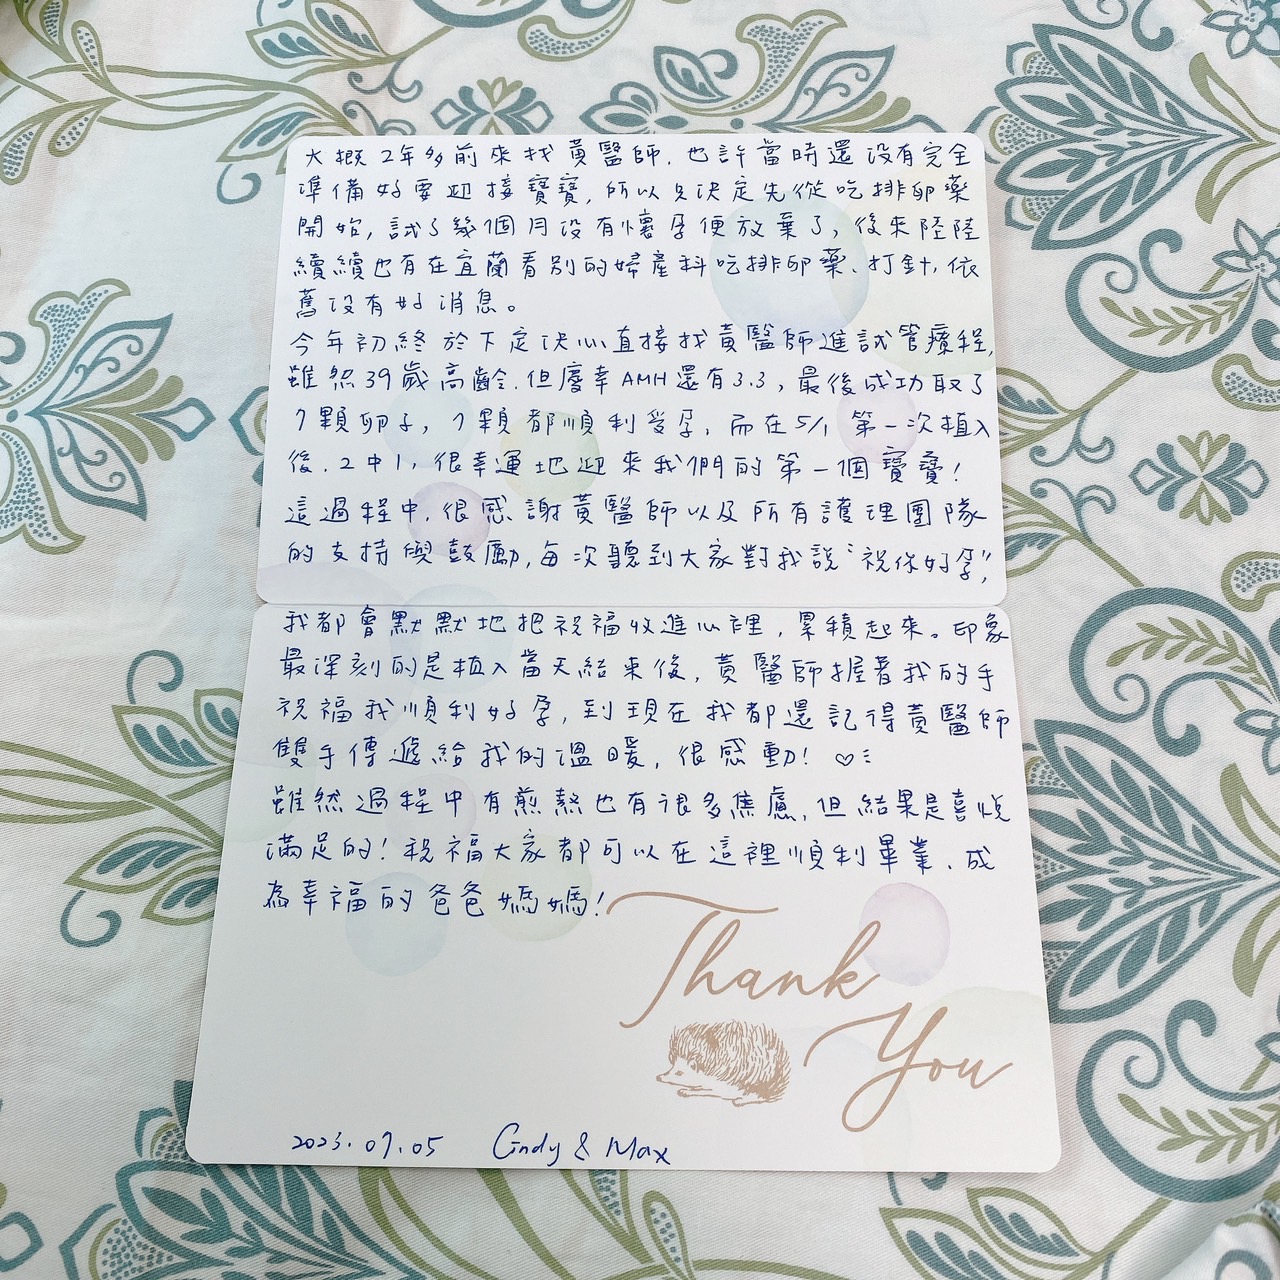 大概2年多前來找黃醫師，也許當時還沒有完全
準備好要迎接寶寶，所以只決定先從吃排卵藥
開始，試了幾個月沒有懷孕便放棄了，後來陸陸
續續也有在宜蘭看別的婦產科吃排卵藥、打針，依
舊沒有好消息。
今年初終於下定決心直接找黃醫師進試管療程，
雖然39歲高齡，但慶幸AMH還有3.3，最後成功取了
7顆卵子，7顆都順利受孕，而在5/1第一次植入
後，2中1，很幸運地迎來我們的第一個寶寶！
這過程中，很感謝黃醫師以及所有護理團隊
的支持與鼓勵，每次聽到大家對我說“祝你好孕”，
我都會默默地把祝福收進心裡，累積起來。印象
最深刻的是植入當天結束後，黃醫師握著我的手
祝福我順利好孕，到現在我都還記得黃醫師
雙手傳遞給我的溫暖，很感動！♡
雖然過程中有煎熬也有很多焦慮，但結果是喜悅
滿足的！祝福大家都可以在這裡順利畢業、成
為幸福的爸爸媽媽！
Thank
You
2023.07.05 Cindy & Max